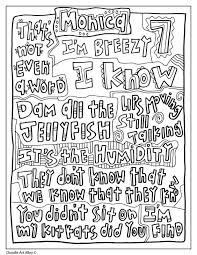 Monica
That's I'm BREEZY 7
not
even I Know
a word
Dam all the Lips Moving
JELLYFISH Still Talking
It's the Humidity
They don't know that
we know that they
You didn't sit on I'm
my kit kats did you FIND
Doodle Art Alley ©